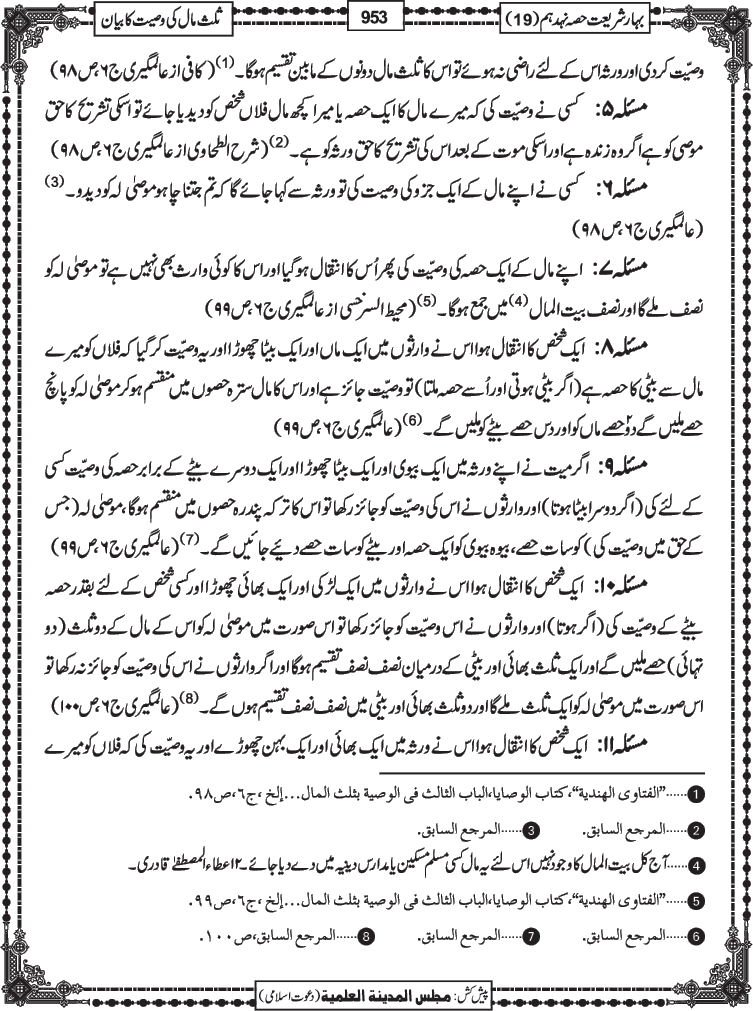 بہار شریعت حصہ نہدہم (19)
953
ثلث مال کی وصیت کا بیان
وصیّت کردی اور ورثہ اس کے لئے راضی نہ ہوئے تو اس کا ثلث مال دونوں کے مابین تقسیم ہوگا۔(1) (کافی از عالمگیری ج۶، ص۹۸)
مسئلہ ۵: کسی نے وصیّت کی کہ میرے مال کا ایک حصہ یا میرا کچھ مال فلاں شخص کو دیدیا جائے تو اسکی تشریح کا حق
موصی کو ہے اگر وہ زندہ ہے اور اسکی موت کے بعد اس کی تشریح کا حق ورثہ کو ہے۔(2) (شرح الطحاوی از عالمگیری ج۶، ص۹۸)
مسئلہ ۶: کسی نے اپنے مال کے ایک جزو کی وصیت کی تو ورثہ سے کہا جائے گا کہ تم جتنا چاہو موصٰی لہ کو دیدو۔(3)
(عالمگیری ج۶، ص۹۸)
مسئلہ ۷: اپنے مال کے ایک حصہ کی وصیّت کی پھر اُس کا انتقال ہوگیا اور اس کا کوئی وارث بھی نہیں ہے تو موصٰی لہ کو
نصف ملے گا اور نصف بیت المال(4) میں جمع ہوگا۔(5) (محیط السرخسی از عالمگیری ج۶، ص۹۹)
مسئلہ ۸: ایک شخص کا انتقال ہوا اس نے وارثوں میں ایک ماں اور ایک بیٹا چھوڑا اور یہ وصیّت کر گیا کہ فلاں کو میرے
مال سے بیٹی کا حصہ ہے (اگر بیٹی ہوتی اور اُسے حصہ ملتا) تو وصیّت جائز ہے اور اس کا مال سترہ حصوں میں منقسم ہو کر موصٰی لہ کو پانچ
حصے ملیں گے دو۲ حصے ماں کو اور دس حصے بیٹے کو ملیں گے۔(6) (عالمگیری ج۶، ص۹۹)
مسئلہ ۹: اگر میت نے اپنے ورثہ میں ایک بیوی اور ایک بیٹا چھوڑا اور ایک دوسرے بیٹے کے برابر حصہ کی وصیّت کسی
کے لئے کی (اگر دوسرا بیٹا ہوتا) اور وارثوں نے اس کی وصیّت کو جائز رکھا تو اس کا ترکہ پندرہ حصوں میں منقسم ہوگا، موصٰی لہ (جس
کے حق میں وصیّت کی) کو سات حصے، بیوہ بیوی کو ایک حصہ اور بیٹے کو سات حصے دئیے جائیں گے۔(7) (عالمگیری ج۶، ص۹۹)
مسئلہ ۱۰: ایک شخص کا انتقال ہوا اس نے وارثوں میں ایک لڑکی اور ایک بھائی چھوڑا اور کسی شخص کے لئے بقدر حصہ
بیٹے کے وصیّت کی (اگر ہوتا) اور وارثوں نے اس وصیّت کو جائز رکھا تو اس صورت میں موصٰی لہ کو اس کے مال کے دو ثلث (دو
تہائی) حصے ملیں گے اور ایک ثلث بھائی اور بیٹی کے درمیان نصف نصف تقسیم ہوگا اور اگر وارثوں نے اس کی وصیّت کو جائز نہ رکھا تو
اس صورت میں موصٰی لہ کو ایک ثلث ملے گا اور دو ثلث بھائی اور بیٹی میں نصف نصف تقسیم ہوں گے۔(8) (عالمگیری ج۶، ص۱۰۰)
مسئلہ ۱۱: ایک شخص کا انتقال ہوا اس نے ورثہ میں ایک بھائی اور ایک بہن چھوڑے اور یہ وصیّت کی کہ فلاں کو میرے
1 ......"الفتاوی الهندية"، كتاب الوصايا، الباب الثالث فی الوصية بثلث المال...إلخ، ج٦، ص٩٨.
2 ......المرجع السابق. 3 ......المرجع السابق.
4 ......آج کل بیت المال کا وجود نہیں اس لئے یہ مال کسی مسلم مسکین یا مدارس دینیہ میں دے دیا جائے۔۱۲ عطاء المصطفےٰ قادری۔
5 ......"الفتاوی الهندية"، كتاب الوصايا، الباب الثالث فی الوصية بثلث المال...إلخ، ج٦، ص٩٩.
6 ......المرجع السابق. 7 ......المرجع السابق. 8 ......المرجع السابق، ص١٠٠.
پیش کش: مجلس المدینة العلمیة (دعوت اسلامی)